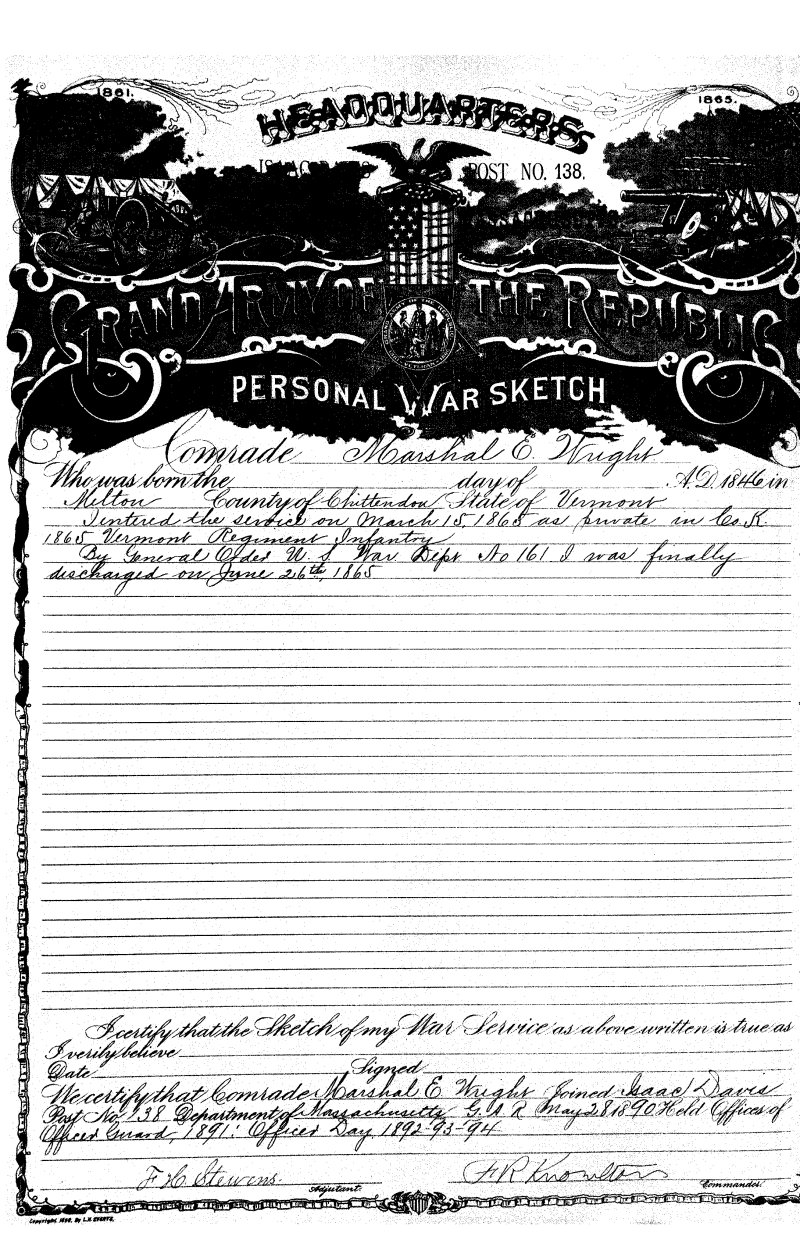 1861.
1865.
HEADQUARTERS
POST NO. 138.
GRAND ARMY OF THE REPUBLIC
PERSONAL WAR SKETCH
Comrade Marshal E. Wright
Who was born the day of A.D. 1846 in
Milton County of Chittendon State of Vermont
I entired the service on March 15 1865 as private in Co. K.
1865 Vermont Regiment Infantry
By General Order U. S. War Dept No 161 I was finally
discharged on June 26th, 1865
I certify that the Sketch of my War Service as above written is true as
I verily believe
Date Signed
We certify that Comrade Marshal E. Wright Joined Isaac Davis
Post No. 138 Department of Massachusetts G. A. R May 28 1890 Held Offices of
Officer Guard, 1891: Officer Day 1892-93-94
F. H. Stevens. Adjutant. F R Knowlton Commander.
Copyright 1890, By L.H. EVERTS.